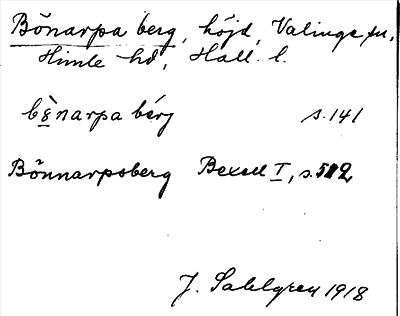 Bönarpa berg, höjd, Valinge sn,
Himle hd, Hall. l.
bö̀narpa bérj s. 141
Bönnarpsberg Bexell I, s. 512
J. Sahlgren 1918